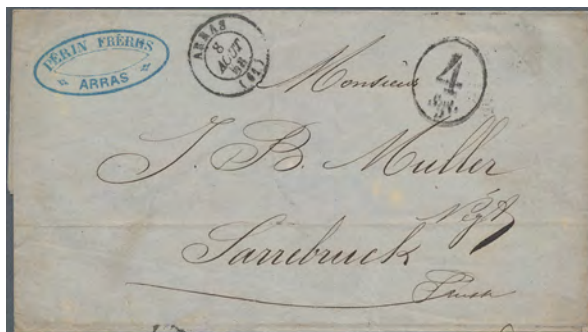 PÉRIN FRÈRES
ARRAS
ARRAS
8
AOUT
58
(61)
4
Sgr.
Monsieur
J. B. Muller
Négt
Sarrebruck
Prusse